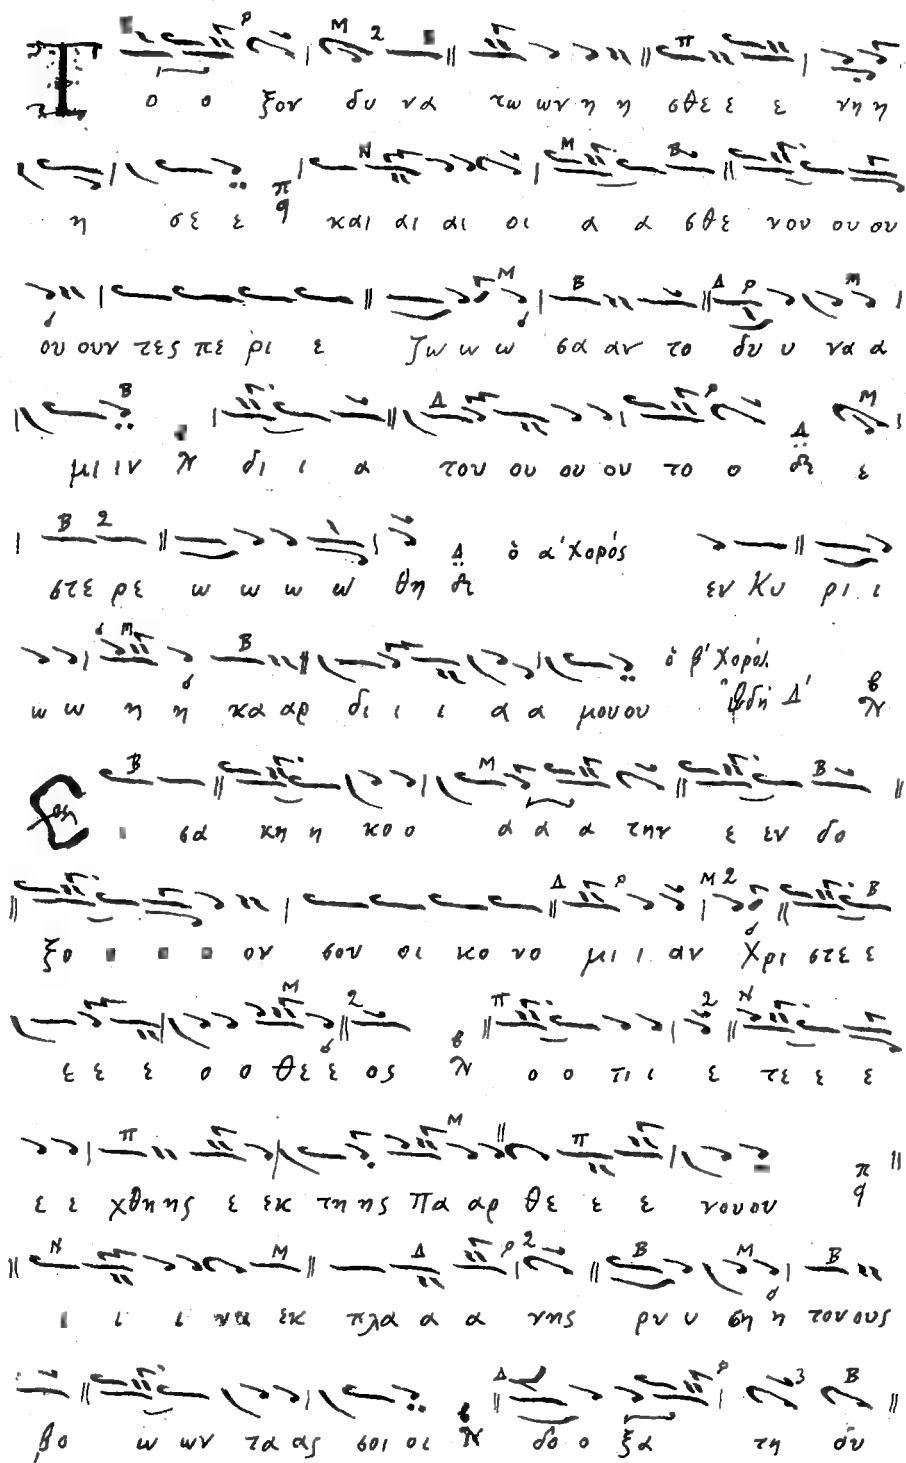 Τ ο ο ξον δυ να τω ων η η σθε ε ε νη η
η σε ε και αι αι οι α α σθε νου ου ου
ου ουν τες πε ρι ε ζω ω ω σα αν το δυ υ να α
μι ιν δι ι α του ου ου ου το ο δε ε
στε ρε ω ω ω ω θη ὁ α' χορός εν Κυ ρι ι
ω ω η η κα αρ δι ι ι α α μου ου ὁ β' χορός ᾨδή Δ'
ι σα κη η κο ο α α α την ε εν δο
ξο ον σου οι κο νο μι ι αν Χρι στε ε
ε ε ε ο ο θε ε ος ο ο τι ι ε τε ε ε
ε ε χθη ης ε εκ τη ης Πα αρ θε ε ε νου ου
ι ι ι να εκ πλα α α νης ρυ υ ση η τους
βο ω ων τα ας σοι οι δο ο ξα τη δυ